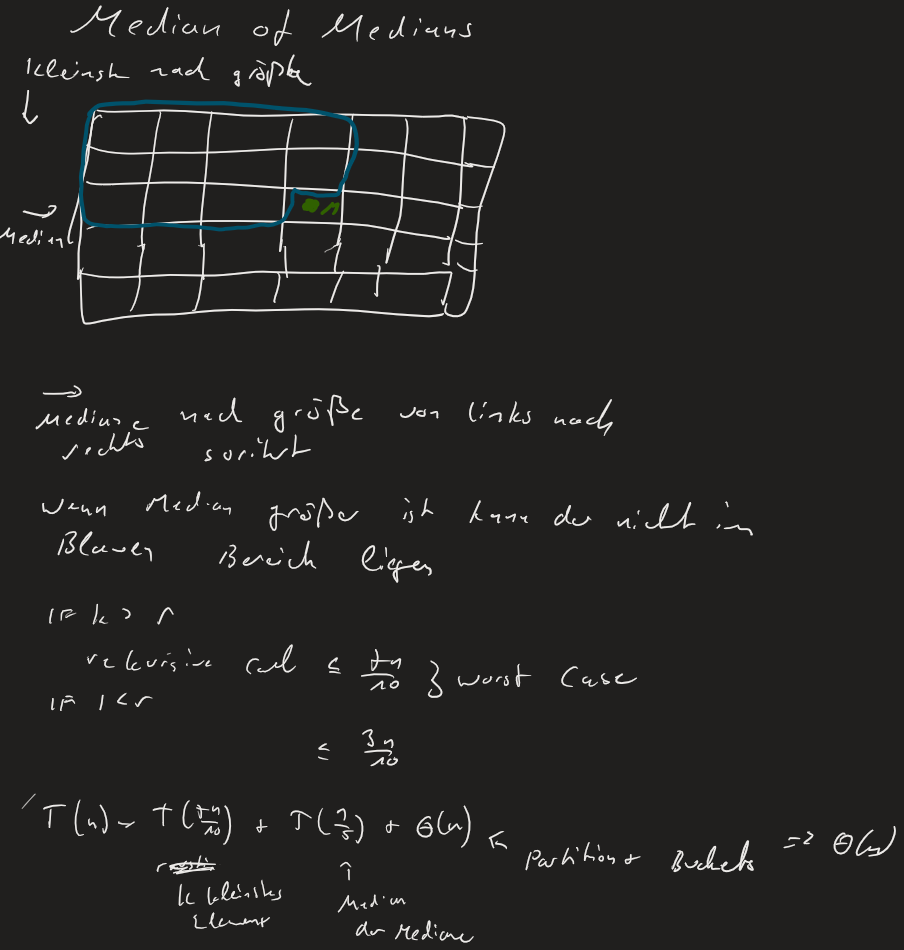 Median of Medians
kleinste nach größte
M
Median
Mediane nach größe von links nach
rechts sortiert
wenn Median größer ist kann der nicht im
Blauen Bereich liegen
IF k > r
rekursive call ≤ 7n/10 } worst case
IF k < r
≤ 3n/10
T(n) = T(7n/10) + T(n/5) + Θ(n) ← Partition + Buckets => Θ(n)
k kleinstes
Element
↑
Median
der Mediane